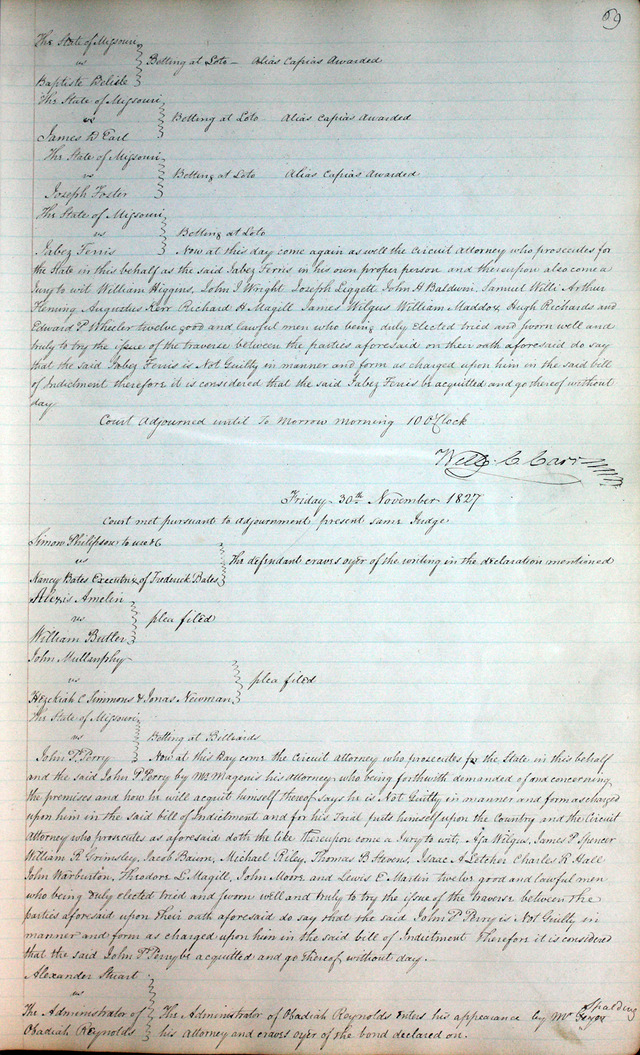 69
The State of Missouri
vs } Betting at Loto — Alias Capias Awarded
Baptiste Belisle
The State of Missouri
vs } Betting at Loto Alias Capias Awarded
James D Earl
The State of Missouri
vs } Betting at Loto Alias Capias Awarded
Joseph Foster
The State of Missouri
vs } Betting at Loto
Jabez Ferris Now at this day come again as well the Circuit Attorney who prosecutes for
the State in this behalf as the said Jabez Ferris in his own proper person and thereupon also come a
Jury to wit William Higgins, John J Wright Joseph Liggett John H Baldwin, Samuel Willi Arthur
Fleming Augustus Kerr Richard H Magill James Wilgus William Maddox, Hugh Richards and
Edward P Wheeler twelve good and lawful men who being duly elected tried and sworn well and
truly to try the issue of the traverse between the parties aforesaid on their oath aforesaid do say
that the said Jabez Ferris is Not Guilty in manner and form as charged upon him in the said bill
of Indictment therefore it is considered that the said Jabez Ferris be acquitted and go thereof without
day
Court Adjourned until To Morrow morning 10 O'Clock
Will. C. Carr
Friday 30th November 1827
Court met pursuant to adjournment present same Judge
Simon Philipson to use &
vs } The defendant craves oyer of the writing in the declaration mentioned
Nancy Bates Executrix of Frederick Bates
Alexis Amelin
vs } plea filed
William Butler
John Mullanphy
vs } plea filed
Hezekiah C Simmons & Jonas Newman
The State of Missouri
vs } Betting at Billiards
John P Perry Now at this Day come the Circuit Attorney who prosecutes for the State in this behalf
and the said John P Perry by Mr Magenis his Attorney who being forthwith demanded of and concerning
the premises and how he will acquit himself thereof says he is Not Guilty in manner and form as charged
upon him in the said bill of Indictment and for his Trial puts himself upon the Country and the Circuit
Attorney who prosecutes as aforesaid doth the like thereupon come a Jury to wit; Asa Wilgus, James P Spencer
William R Grimsley, Jacob Baum, Michael Riley, Thomas B Stevens, Isaac A Letcher Charles R Hall
John Warburton, Theodore L Magill, John Moore and Lewis E Martin twelve good and lawful men
who being duly elected tried and sworn well and truly to try the issue of the traverse between the
parties aforesaid upon their oath aforesaid do say that the said John P Perry is Not Guilty in
manner and form as charged upon him in the said bill of Indictment Therefore it is considered
that the said John P Perry be acquitted and go thereof without day.
Alexander Stuart
vs
Spalding
The Administrator of } The Administrator of Obadiah Reynolds enters his appearance by Mr Geyer
Obadiah Reynolds his Attorney and craves oyer of the bond declared on.